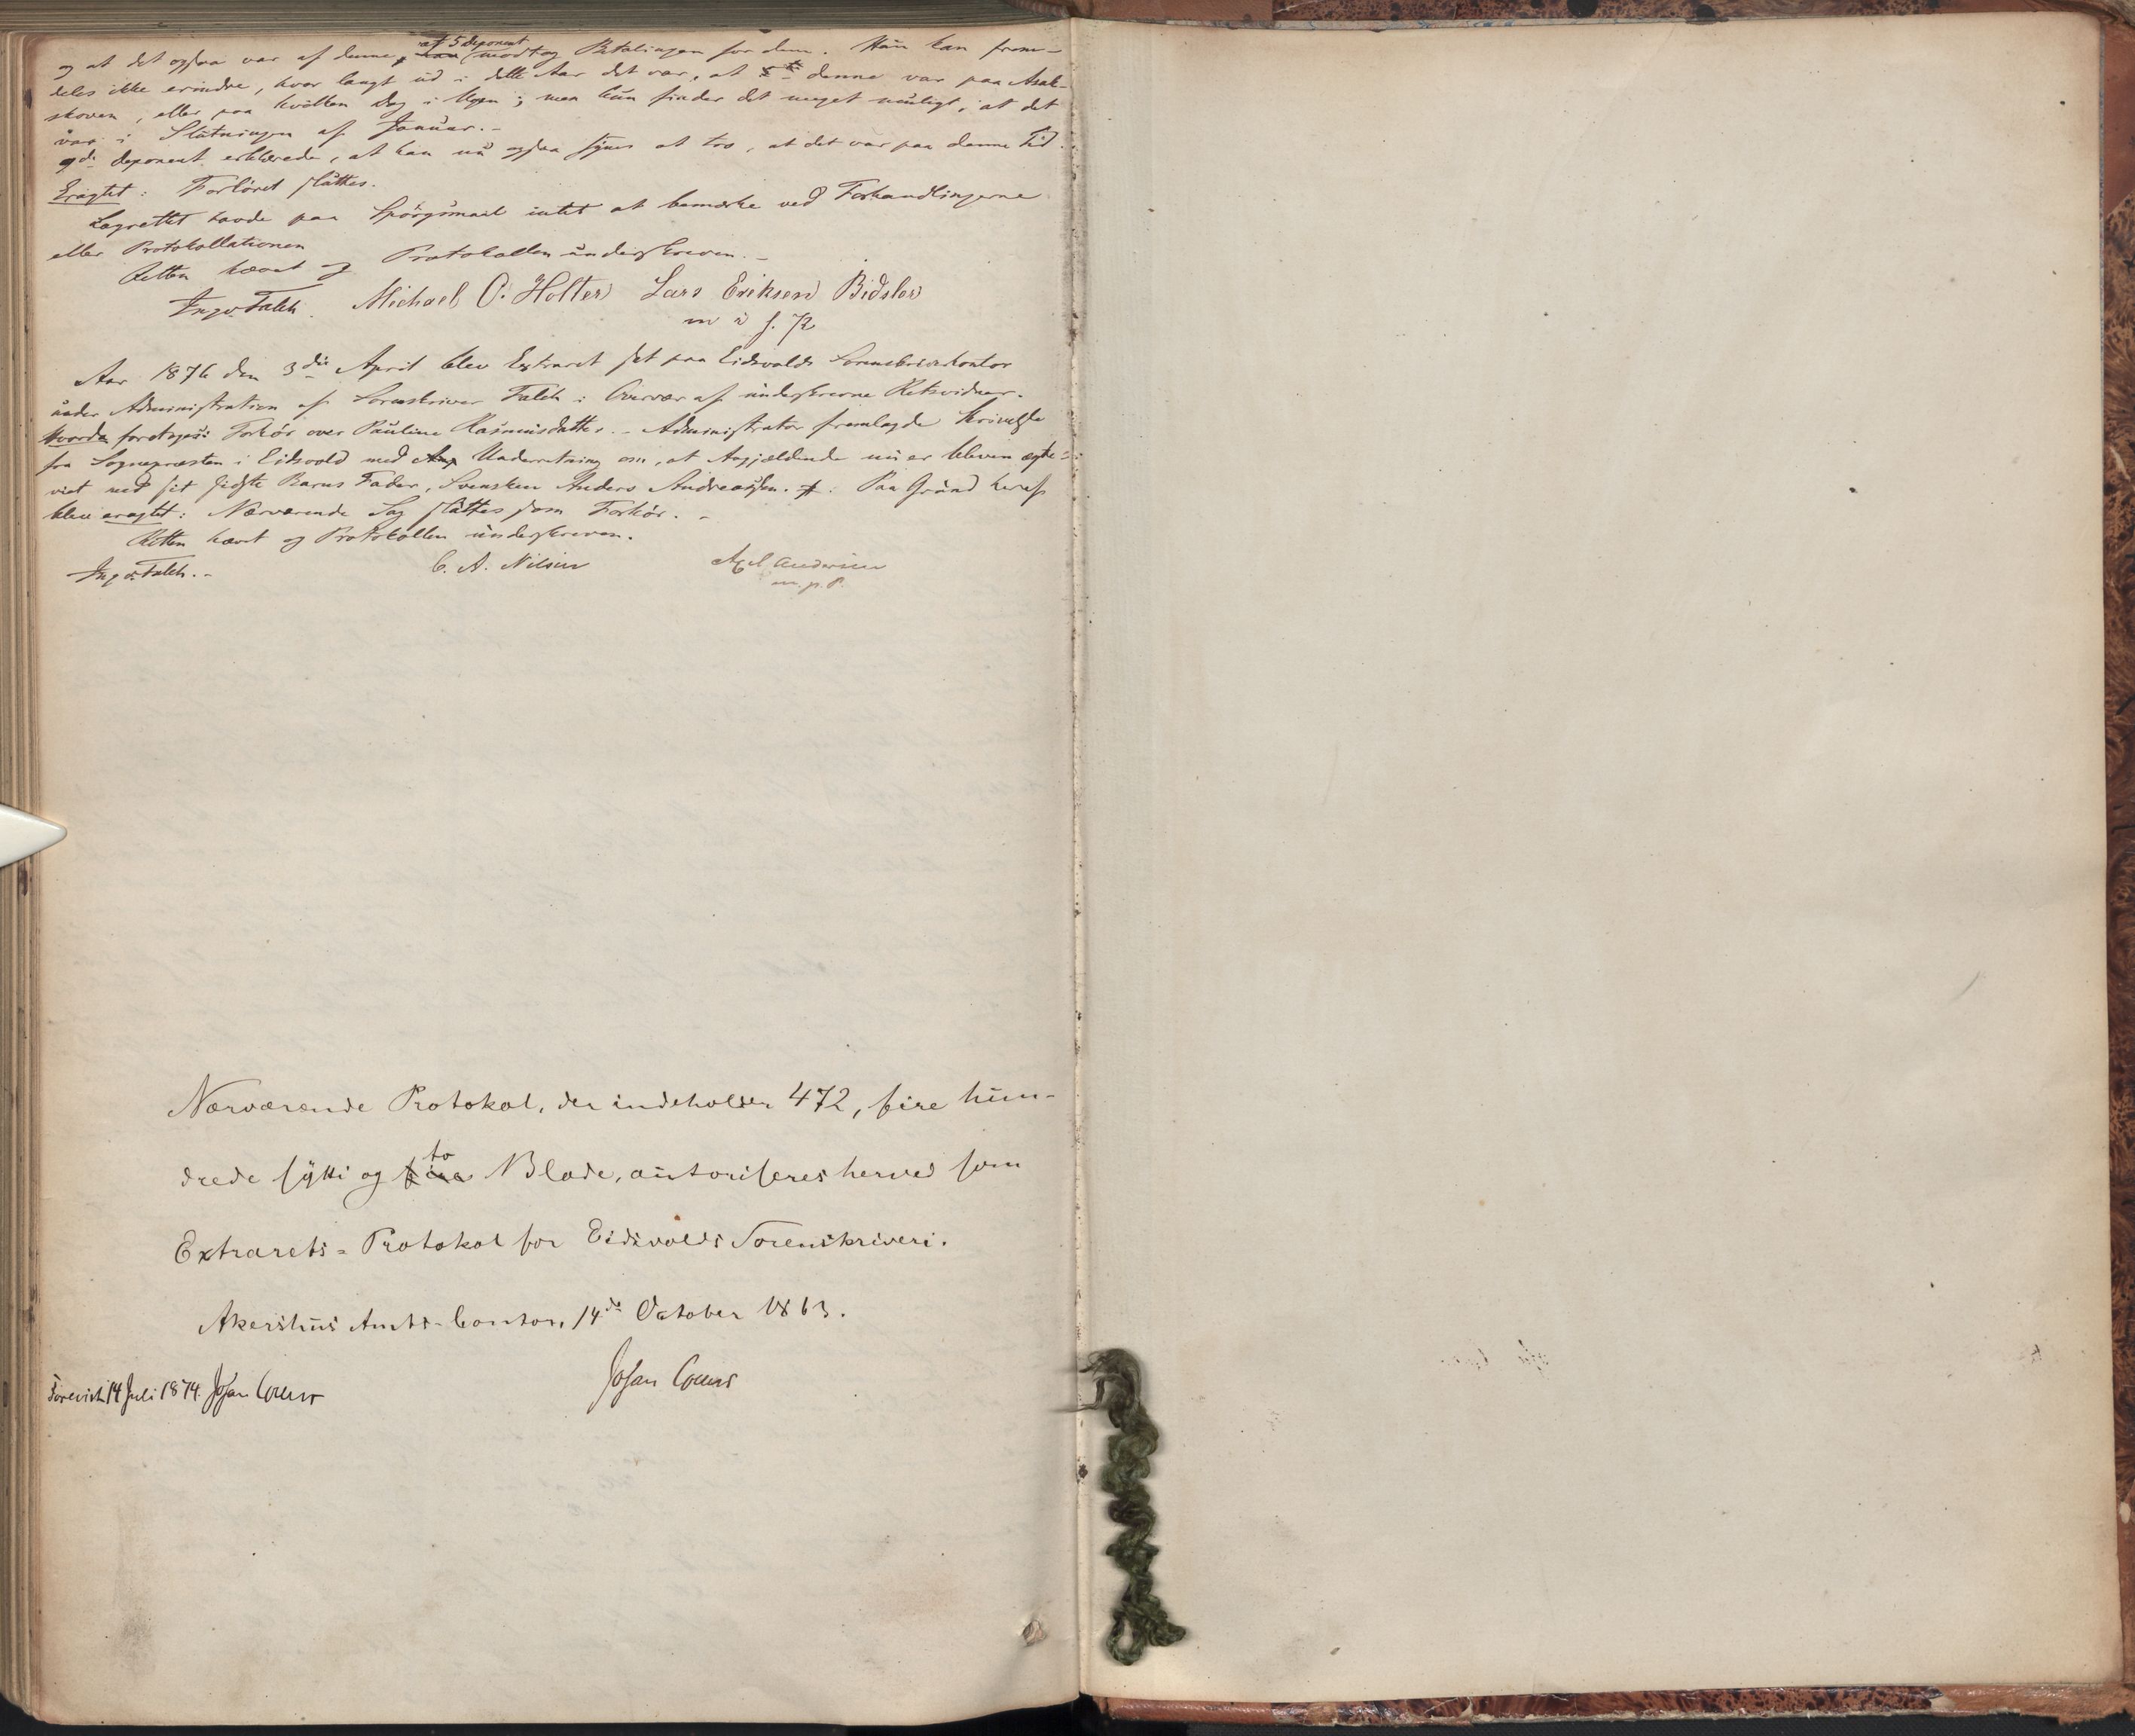 og at det ogsaa var af denne, at 5 deponent modtog Betalingen for dem. Han kan frem-
deles ikke erindre, hvor langt ud i dette Aar det var, at denne var paa Asak-
skoven, eller paa hvilken Dag i Ugen; men han finder det meget muligt, at det
var i Slutningen af Januar.-
9de deponent erklærede, at han nu ogsaa synes at tro, at det var paa denne Tid.
Eragtet: Forhöret sluttes.
Lagrettet havde paa Spörgsmaal intet at bemærke ved Forhandlingerne
eller Protokollationen
Retten hævet og Protokollen underskreven.-
Ingv. Falch. Michael O. Holter Lars Eriksen Bidsler
m i f. P
Aar 1876 den 3die April blev Extraret sat paa Eidsvolds Sorenskriverkontor
under Administration af Sorenskriver Falch i Overvær af underskrevne Retsvidner.
Hvorda foretoges: Forhör over Pauline Rasmusdatter.- Administrator fremlagde Skrivelse
fra Sognepræsten i Eidsvold med Underretning om, at Angjældende nu er bleven ægte-
viet med sit sidste Barns Fader, Svensken Anders Andreassen. Paa Grund heraf
blev eragtet: Nærværende Sag sluttes som Forhör.-
Retten hævet og Protokollen underskreven.
Ingv. Falch.- C. A. Nilsen Axel Andersen
m. p. P.
Nærværende Protokol, der indeholder 472, fire hun-
drede sytti og to Blade, autoriseres herved som
Extrarets-Protokol for Eidsvolds Sorenskriveri.
Akershus Amts-Contor, 14de October 1863.
Johan Collett
Forevist 14 Juli 1874. Johan Collett